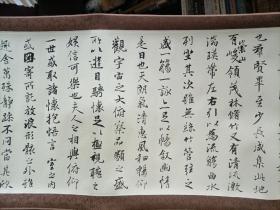 也群賢畢至少長咸集此地
有崇山峻領茂林脩竹又有清流激
湍暎帶左右引以為流觴曲水
列坐其次雖無絲竹管弦之
盛一觴一詠上足以暢敘幽情
是日也天朗氣清惠風和暢仰
觀宇宙之大俯察品類之盛
所以遊目騁懷足以極視聽之
娛信可樂也夫人之相與俯仰
一世或取諸懷抱悟言一室之內
或因寄所託放浪形骸之外雖
趣舍萬殊靜躁不同當其欣